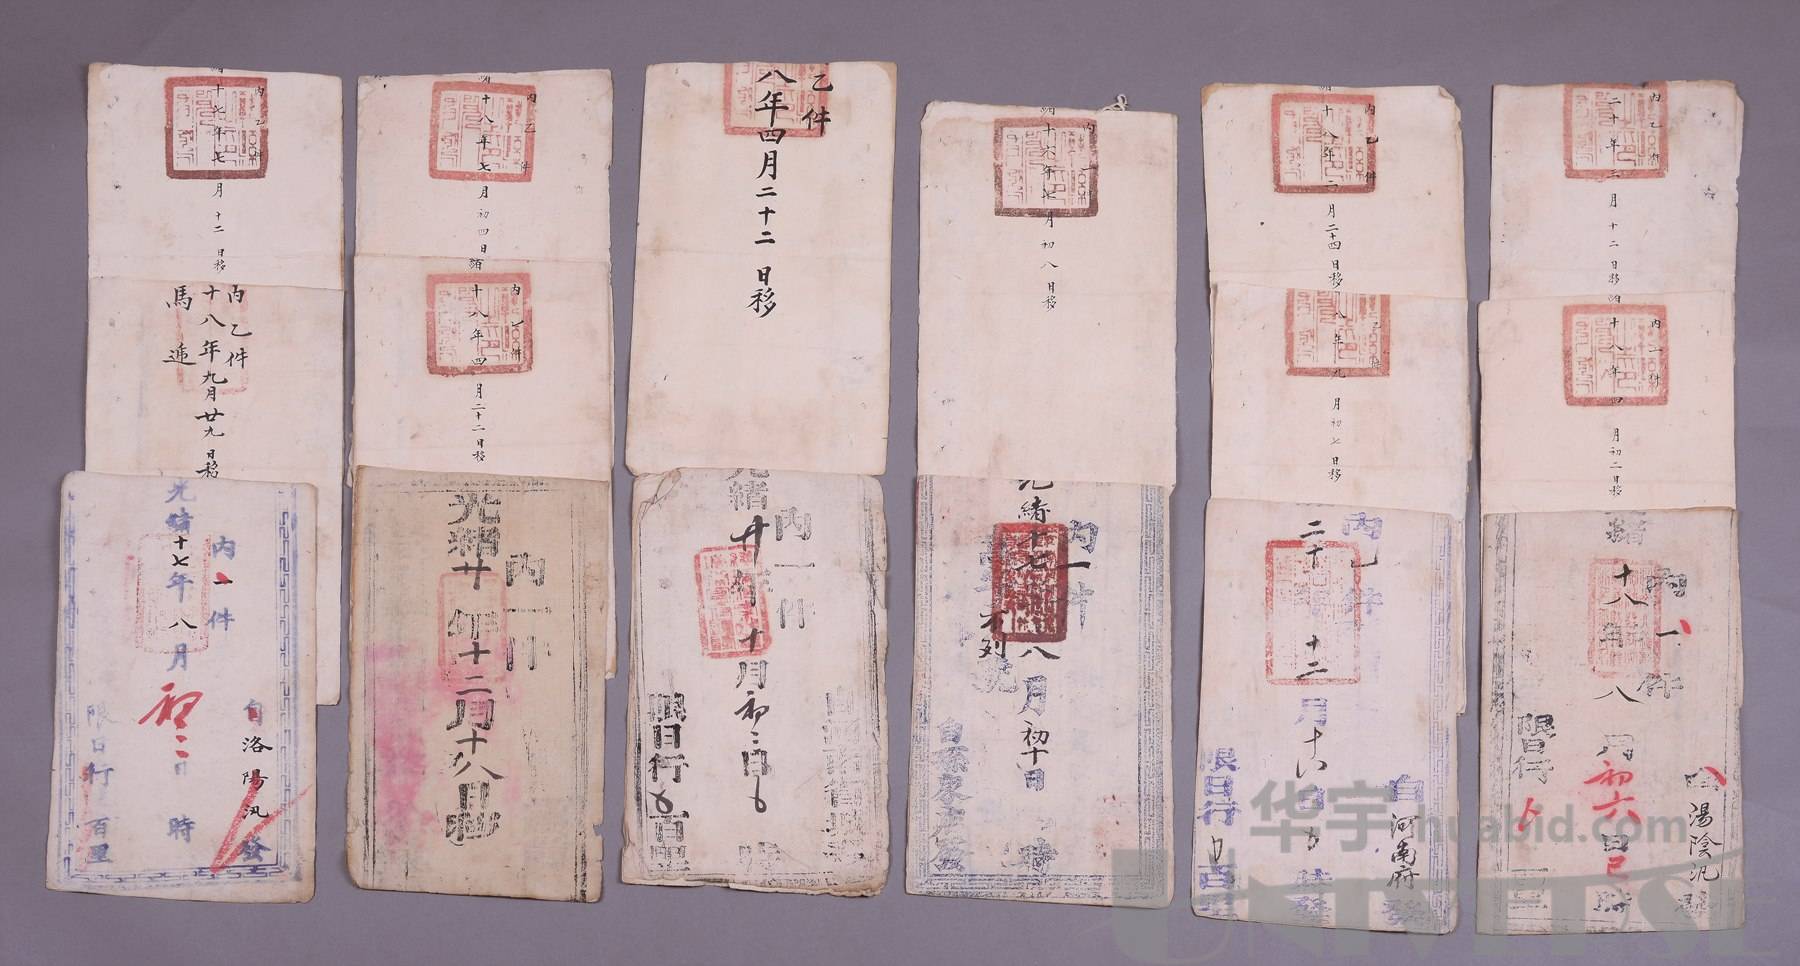 內乙件
十七年七月十二日移
內乙件
十八年九月廿九日移
馬遞
內一件
光緒十七年八月初二日時
自洛陽汛發
限日行百里
內乙件
十八年七月初四日移
內乙件
緒十八年四月二十二日移
內一件
光緒廿年十二月十八日移
乙件
八年四月二十二日移
內一件
光緒廿年十月初二日時
限日行百里
內一
緒十六年七月初八日移
內一件
光緒十七年八月初十日時
不列號
內乙件
十八年二月二十四日移
乙件
八年九月初七日移
內乙件
二十年十二月十六日時發
自河南府發
限日行百里
內乙件
二十年三月十二日移
內一件
緒十八年四月初二日移
內一件
緒十八年八月初六日巳時
自湯陰汛發
限日行百里
华宇 huabid.com